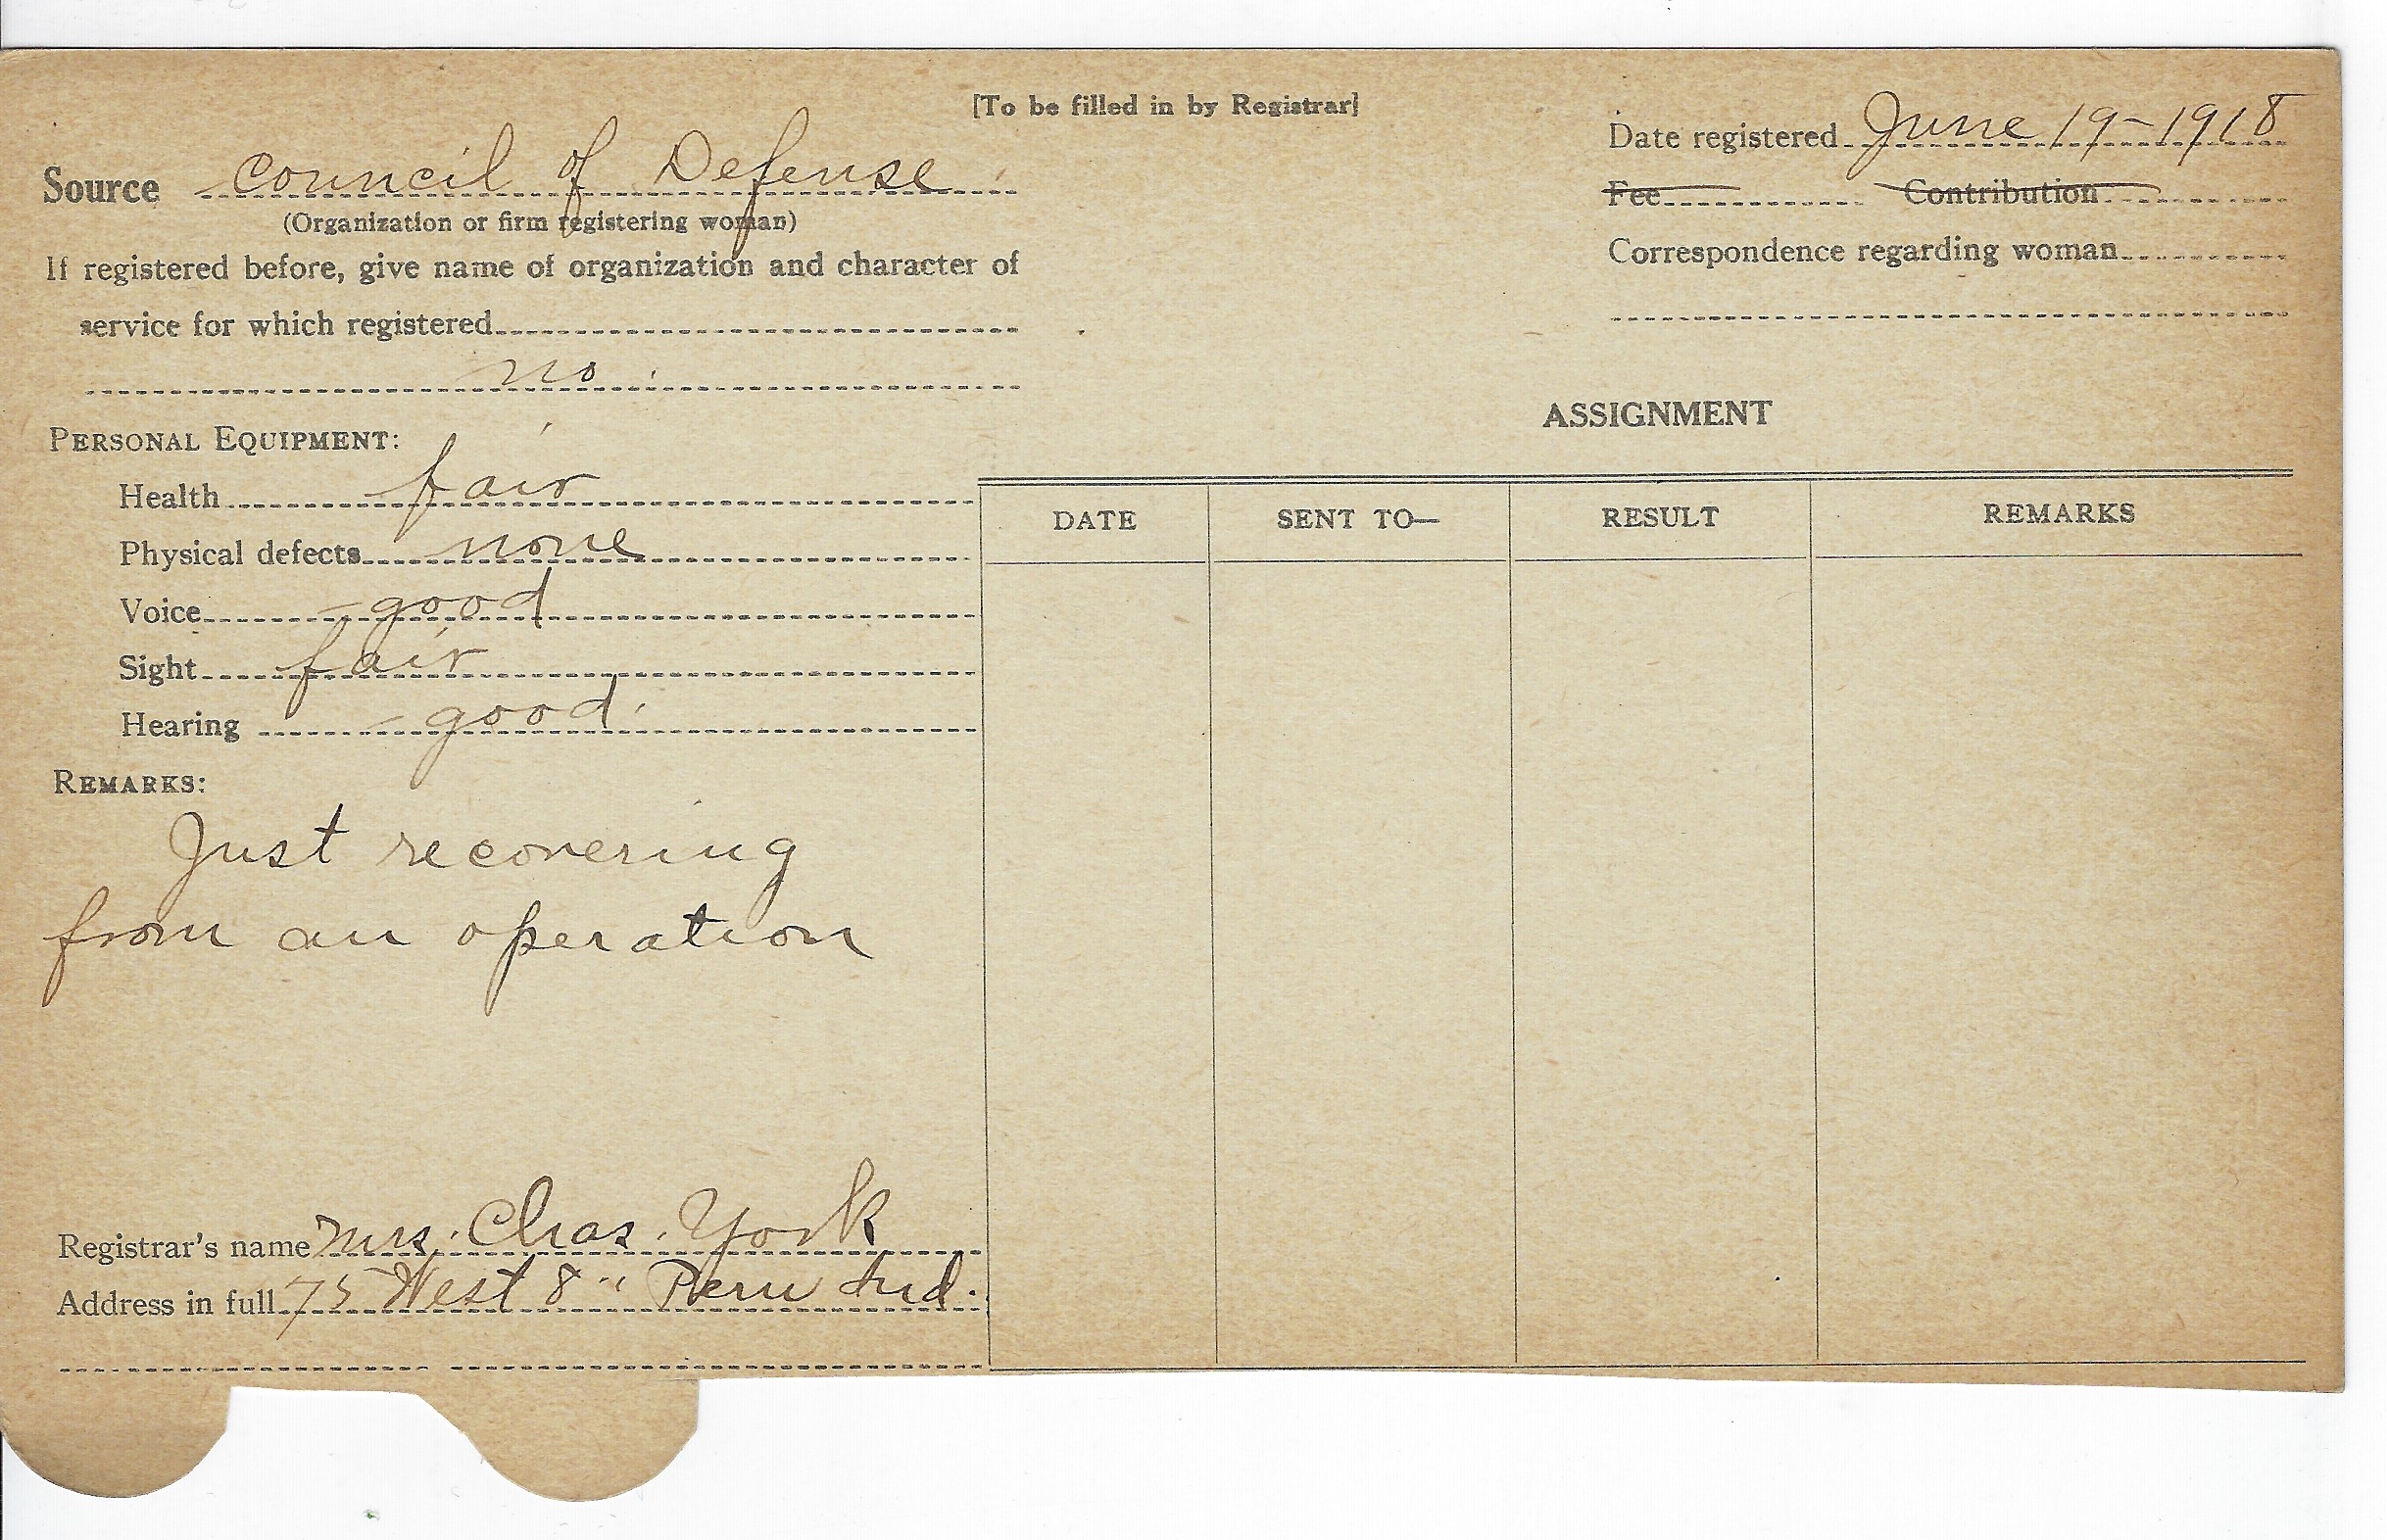 [To be filled in by Registrar]
Date registered June 19-1918
Source Council of Defense
Fee Contribution
(Organization or firm registering woman)
Correspondence regarding woman
If registered before, give name of organization and character of
service for which registered
no
ASSIGNMENT
PERSONAL EQUIPMENT:
Health fair
Physical defects none
Voice good
Sight fair
Hearing good.
DATE SENT TO— RESULT REMARKS
REMARKS:
Just recovering
from an operation
Registrar's name Mrs. Chas. York
Address in full 75 West 8" Peru Ind.